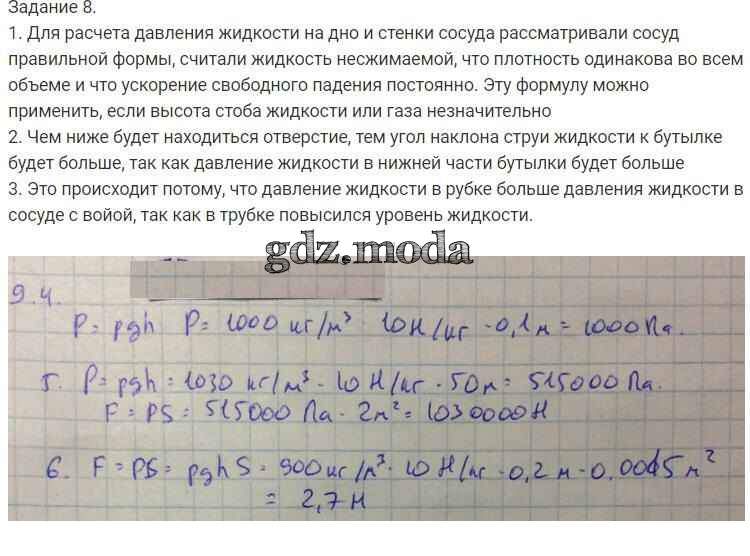 Задание 8.
1. Для расчета давления жидкости на дно и стенки сосуда рассматривали сосуд
правильной формы, считали жидкость несжимаемой, что плотность одинакова во всем
объеме и что ускорение свободного падения постоянно. Эту формулу можно
применить, если высота стоба жидкости или газа незначительно
2. Чем ниже будет находиться отверстие, тем угол наклона струи жидкости к бутылке
будет больше, так как давление жидкости в нижней части бутылки будет больше
3. Это происходит потому, что давление жидкости в рубке больше давления жидкости в
сосуде с войой, так как в трубке повысился уровень жидкости.
gdz.moda
9.4.
P = ρgh P = 1000 кг/м³ · 10 Н/кг · 0,1 м = 1000 Па.
5. P = ρgh = 1030 кг/м³ · 10 Н/кг · 50 м = 515000 Па.
F = PS = 515000 Па · 2 м² = 1030000 Н
6. F = PS = ρghS = 900 кг/м³ · 10 Н/кг · 0,2 м · 0.0015 м²
= 2,7 Н